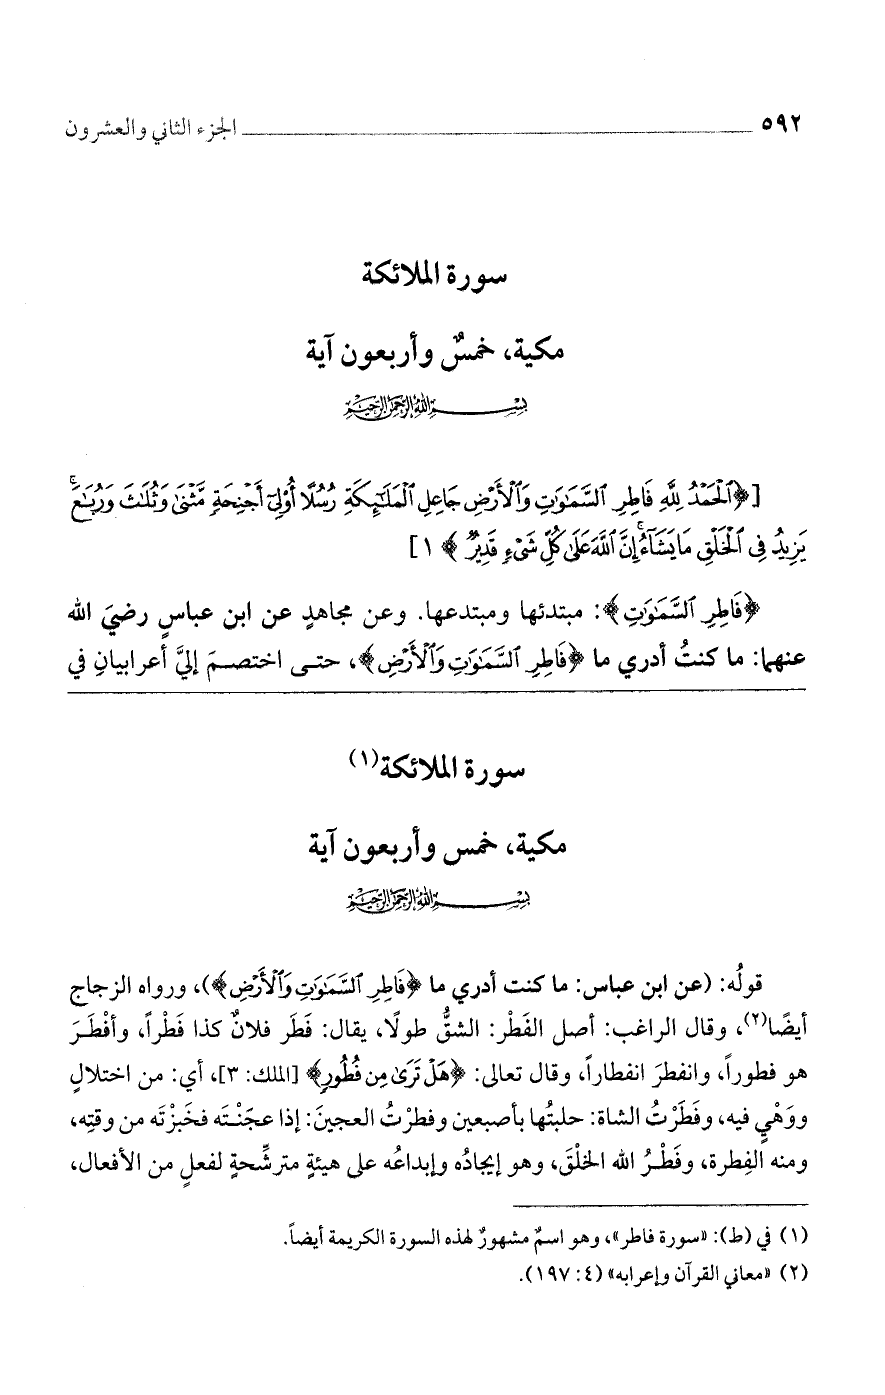 ٥٩٢ الجزء الثاني والعشرون
سورة الملائكة
مكية، خمسٌ وأربعون آية
بِسْمِ اللَّهِ الرَّحْمَنِ الرَّحِيمِ
[﴿ٱلْحَمْدُ لِلَّهِ فَاطِرِ ٱلسَّمَٰوَٰتِ وَٱلْأَرْضِ جَاعِلِ ٱلْمَلَٰٓئِكَةِ رُسُلًا أُو۟لِىٓ أَجْنِحَةٍ مَّثْنَىٰ وَثُلَٰثَ وَرُبَٰعَ ۚ
يَزِيدُ فِى ٱلْخَلْقِ مَا يَشَآءُ ۚ إِنَّ ٱللَّهَ عَلَىٰ كُلِّ شَىْءٍ قَدِيرٌ﴾ ١]
﴿فَاطِرِ ٱلسَّمَٰوَٰتِ﴾: مبتدئها ومبتدعها. وعن مجاهدٍ عن ابن عباسٍ رضيَ الله
عنهما: ما كنتُ أدري ما ﴿فَاطِرِ ٱلسَّمَٰوَٰتِ وَٱلْأَرْضِ﴾، حتى اختصمَ إليَّ أعرابيانِ في
سورة الملائكة(١)
مكية، خمس وأربعون آية
بِسْمِ اللَّهِ الرَّحْمَنِ الرَّحِيمِ
قولُه: (عن ابن عباس: ما كنت أدري ما ﴿فَاطِرِ ٱلسَّمَٰوَٰتِ وَٱلْأَرْضِ﴾)، ورواه الزجاج
أيضًا(٢)، وقال الراغب: أصل الفَطْر: الشقُّ طولًا، يقال: فَطَر فلانٌ كذا فَطْراً، وأفْطَرَ
هو فطوراً، وانفطرَ انفطاراً، وقال تعالى: ﴿هَلْ تَرَىٰ مِن فُطُورٍ﴾ [الملك: ٣]، أي: من اختلالٍ
ووَهْيٍ فيه، وفَطَرْتُ الشاة: حلبتُها بأصبعين وفطرْتُ العجينَ: إذا عجَنْتَه فخَبزْتَه من وقتِه،
ومنه الفِطرة، وفَطْرُ الله الخلْقَ، وهو إيجادُه وإبداعُه على هيئةٍ مترشِّحةٍ لفعلٍ من الأفعال،
(١) في (ط): «سورة فاطر»، وهو اسمٌ مشهورٌ لهذه السورة الكريمة أيضاً.
(٢) «معاني القرآن وإعرابه» (٤: ١٩٧).